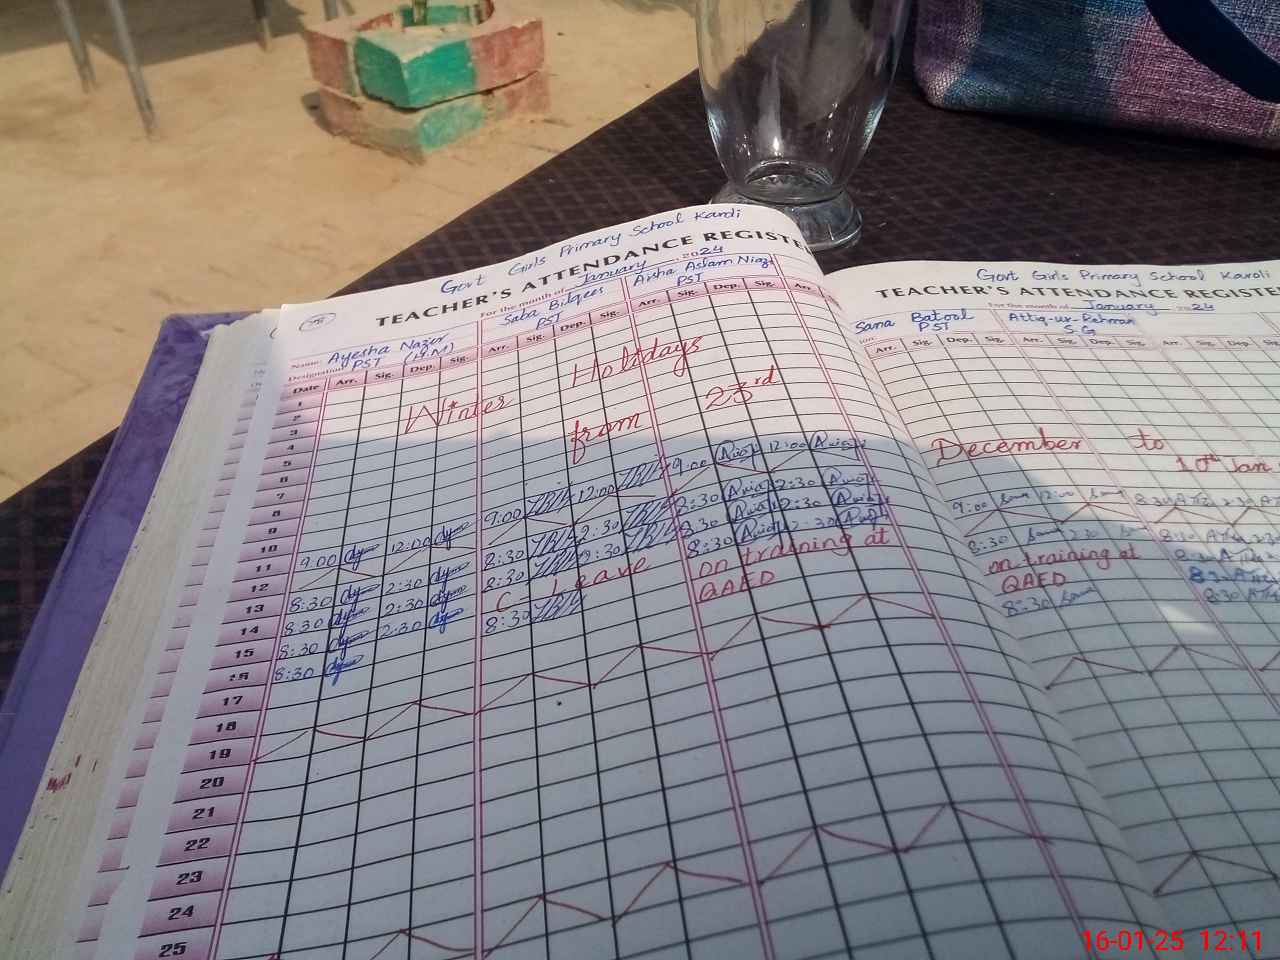 Govt Girls Primary School Karoli
TEACHER'S ATTENDANCE REGISTE
For the month of January, 2024
Name Ayesha Nazir Saba Bilqees Aisha Aslam Niazi
Designation PST (H.M) PST PST
Date Arr. Sig. Dep. Sig. Arr. Sig. Dep. Sig. Arr. Sig. Dep. Sig. Arr.
1
2
3
4
5
6
7
8
9
10
11
12
13
14
15
16
17
18
19
20
21
22
23
24
25
Winter Holidays
from 23rd
9:00 12:00 9:00 12:00 9:00 12:00
8:30 2:30 8:30 2:30 8:30 2:30
8:30 2:30 8:30 2:30 8:30 2:30
8:30 2:30 C-Leave 8:30 2:30
8:30 8:30 on training at
QAED
Govt Girls Primary School Karoli
TEACHER'S ATTENDANCE REGISTE
For the month of January 2024
Sana Batool Attiq-ur-Rehman
PST S.G
Arr. Sig. Dep. Sig. Arr. Sig. Dep. Sig.
December to
10th Jan.
9:00 12:00 8:30 2:30
8:30 8:30
on training at
QAED
8:30 8:30
16-01-25 12:11